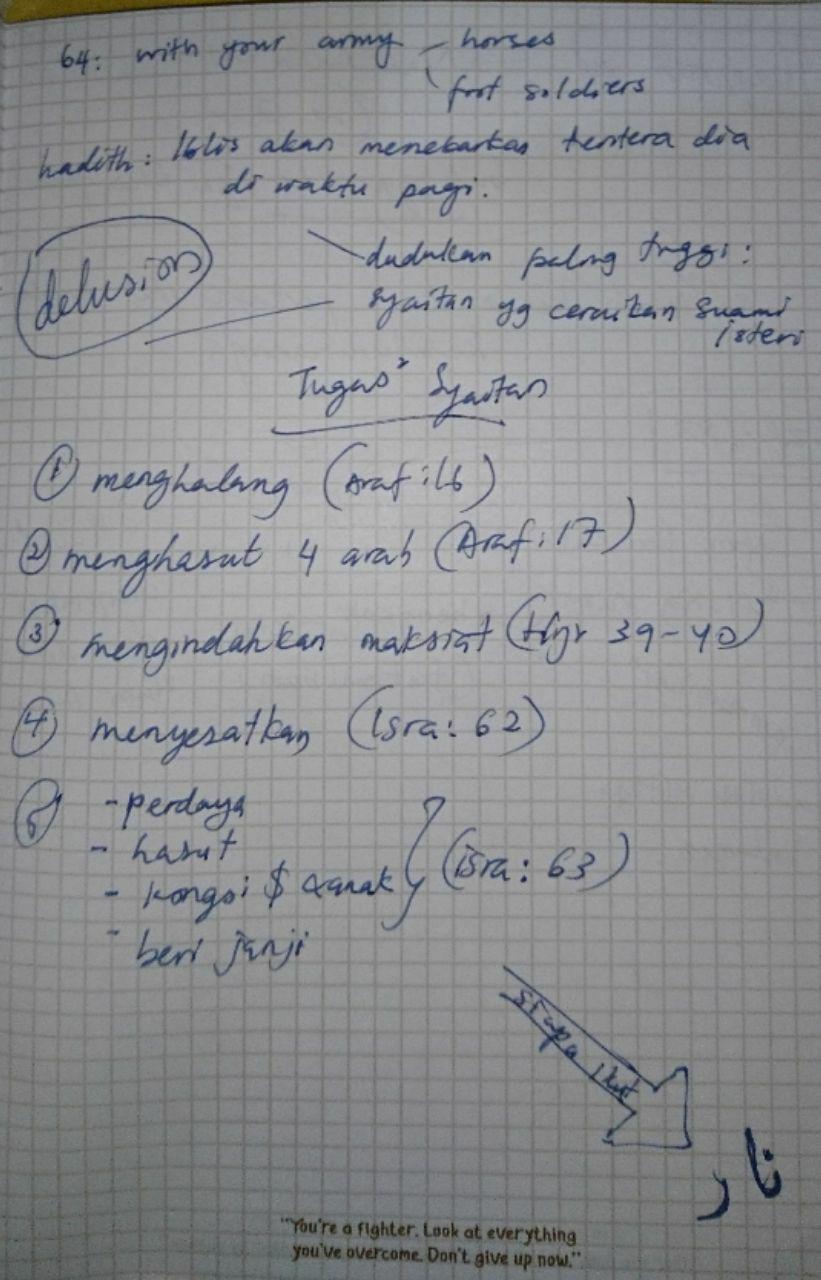 64: with your army - horses
foot soldiers
hadith: Iblis akan menebarkas tentera dia
di waktu pagi.
delusion
dudukan paling tinggi:
syaitan yg ceraikan suami
isteri
Tugas² Syaitan
① menghalang (Araf: 16)
② menghasut 4 arah (Araf: 17)
③ mengindahkan maksiat (Hijr 39-40)
④ menyesatkan (Isra: 62)
⑤ - perdaya
- hasut
- kongsi $ & anak
- beri janji
(isra: 63)
siapa ikut
نار
"You're a fighter. Look at everything
you've overcome. Don't give up now."